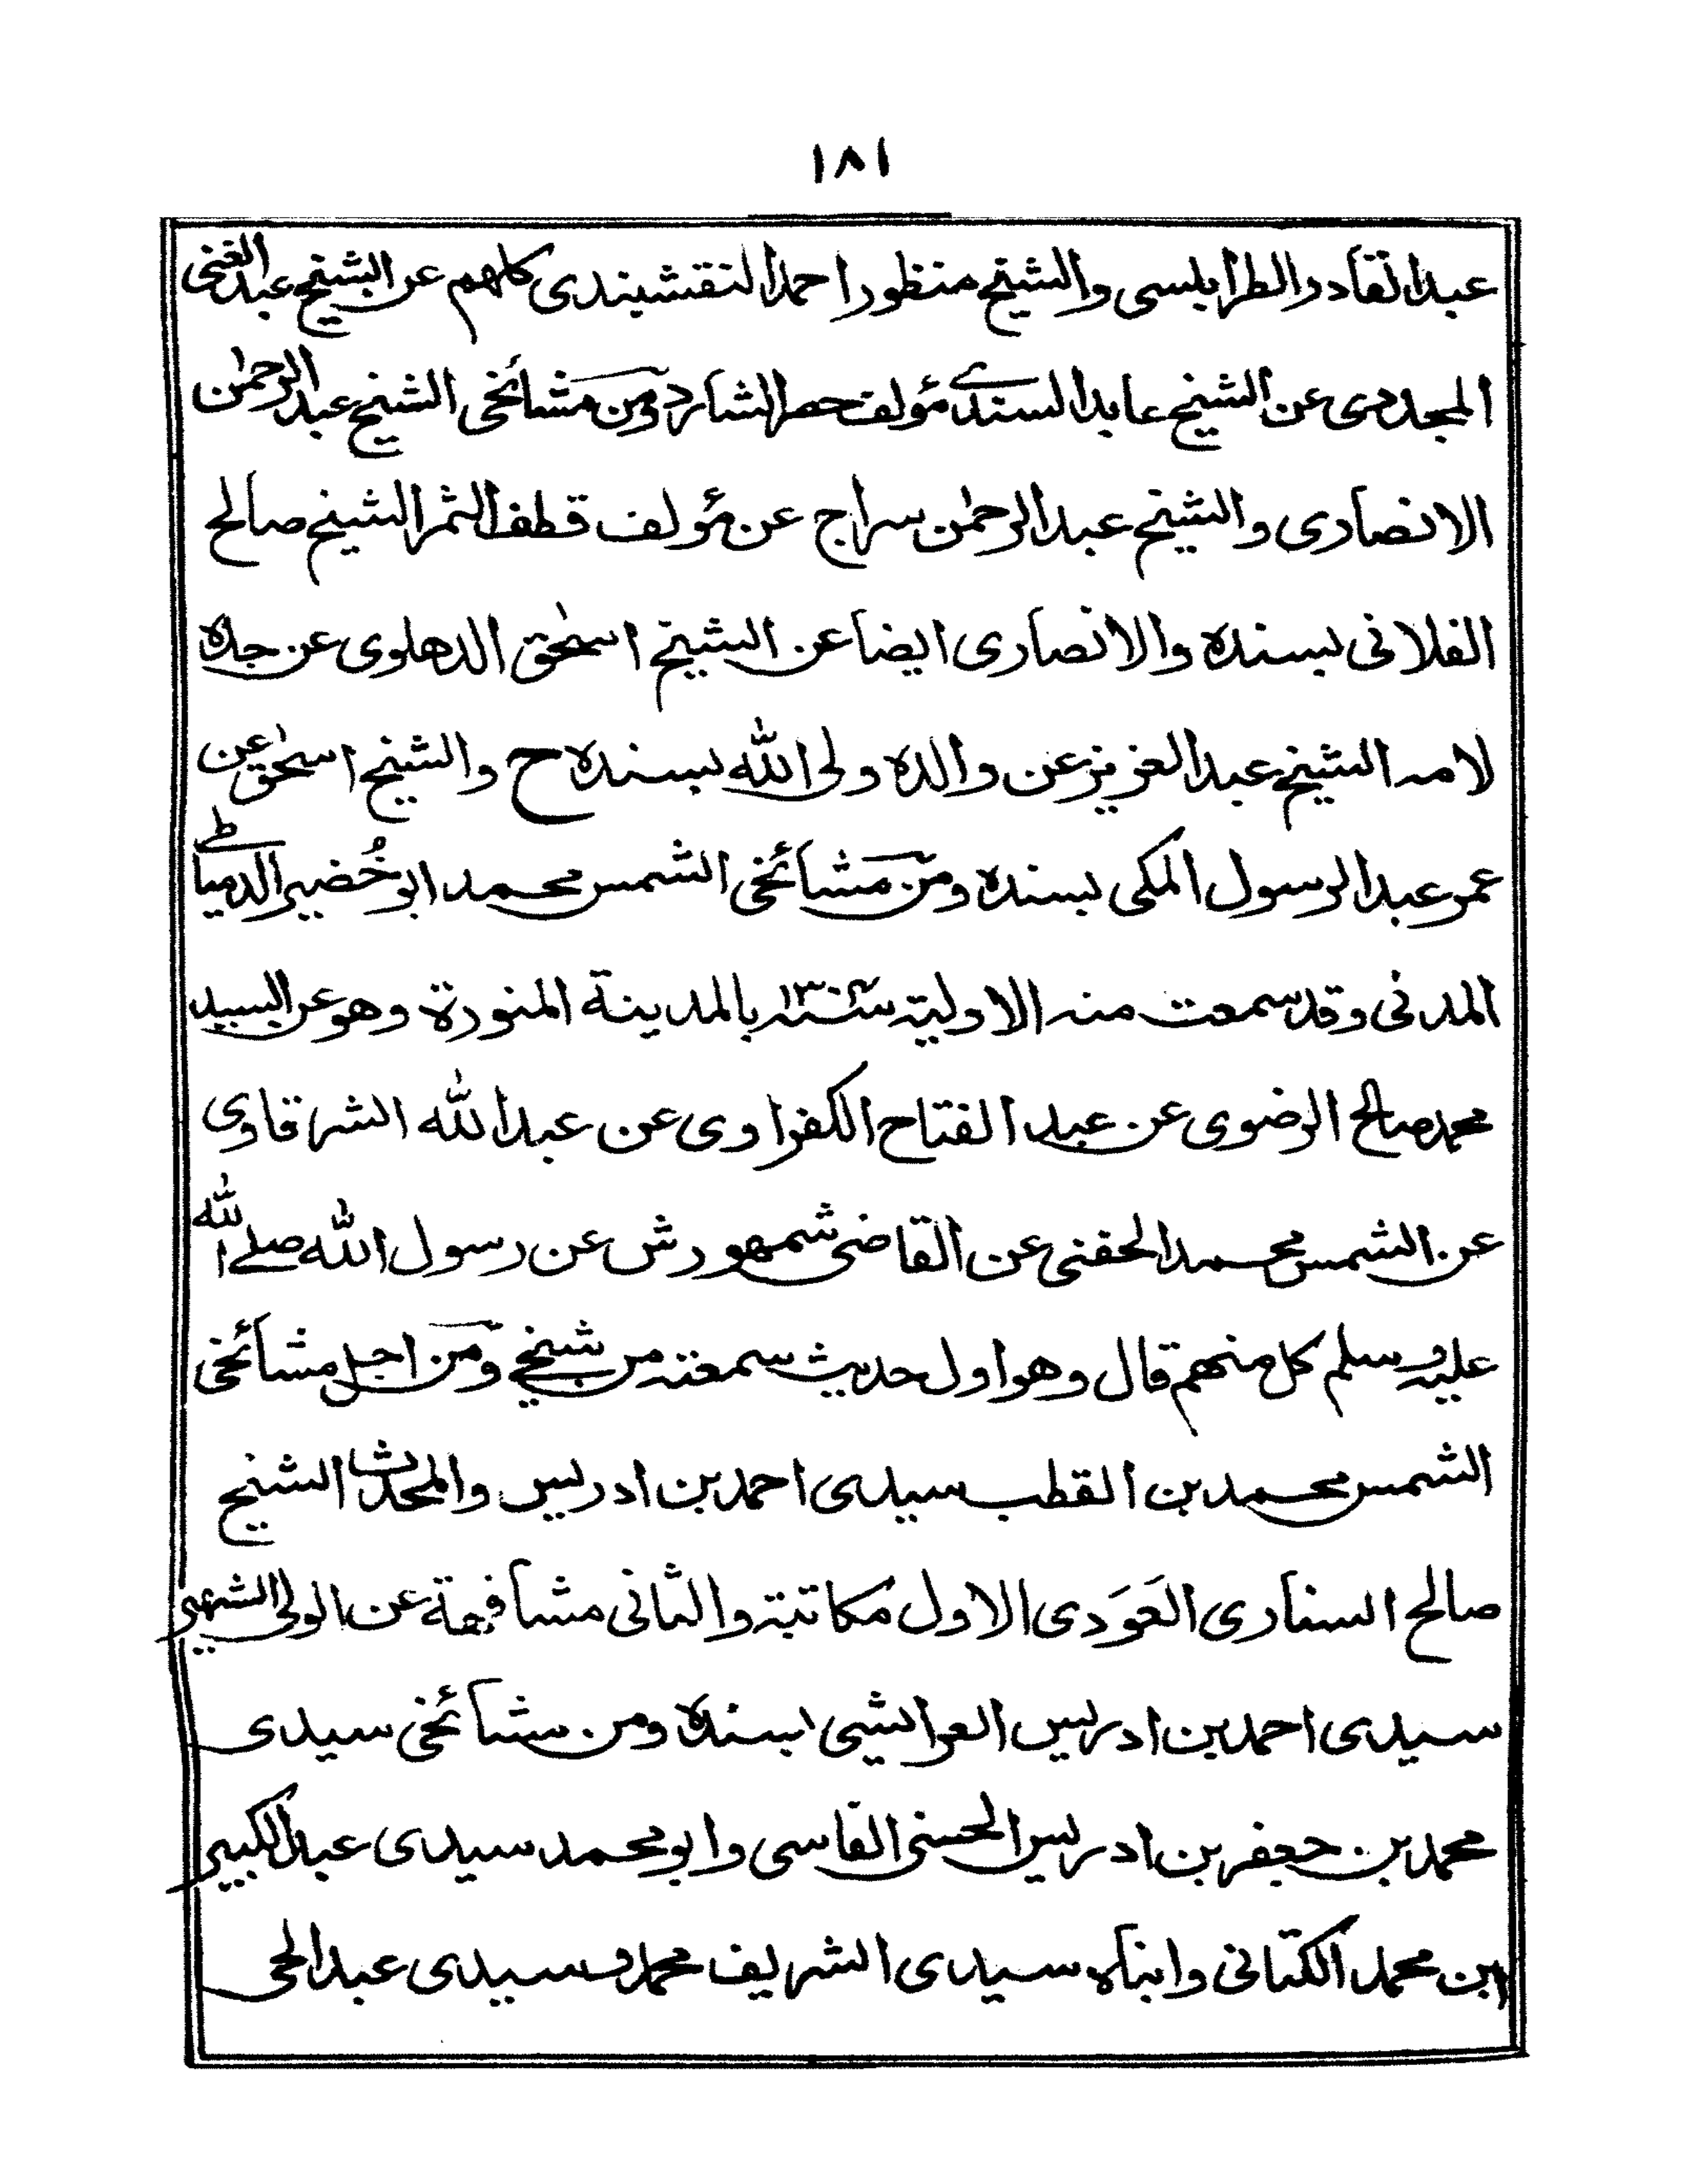 ١٨١
عبدالقادر الطرابلسى والشيخ منظور احمد النقشبندى كلهم عن الشيخ عبد الغنى
المجددى عن الشيخ عابد السندى مؤلف حصر الشارد ومن مشائخى الشيخ عبد الرحمٰن
الانصارى والشيخ عبد الرحمٰن سراج عن مؤلف قطف الثمر الشيخ صالح
الفلانى بسنده والانصارى ايضا عن الشيخ اسحٰق الدهلوى عن جده
لامه الشيخ عبد العزيز عن والده ولى الله بسنده ح والشيخ اسحٰق عن
عمر عبد الرسول المكى بسنده ومن مشائخى الشمس محمد ابو خُضير الدمياطى
المدنى وقد سمعت منه الاولية بالمدينة المنورة وهو عن السيد
محمد صالح الرضوى عن عبد الفتاح الكفراوى عن عبد الله الشرقاوى
عن الشمس محمد الحفنى عن القاضى شمهورش عن رسول الله صلے الله
عليه وسلم كل منهم قال وهو اول حديث سمعته من شيخى ومن اجل مشائخى
الشمس محمد بن القطب سيدى احمد بن ادريس والمحدث الشيخ
صالح السنارى العَوَدى الاول مكاتبة والثانى مشافهة عن الولى الشهير
سيدى احمد بن ادريس العرائشى بسنده ومن مشائخى سيدى
محمد بن جعفر بن ادريس الحسنى الفاسى وابو محمد سيدى عبد الكبير
ابن محمد الكتانى وابناه سيدى الشريف محمد وسيدى عبد الحى